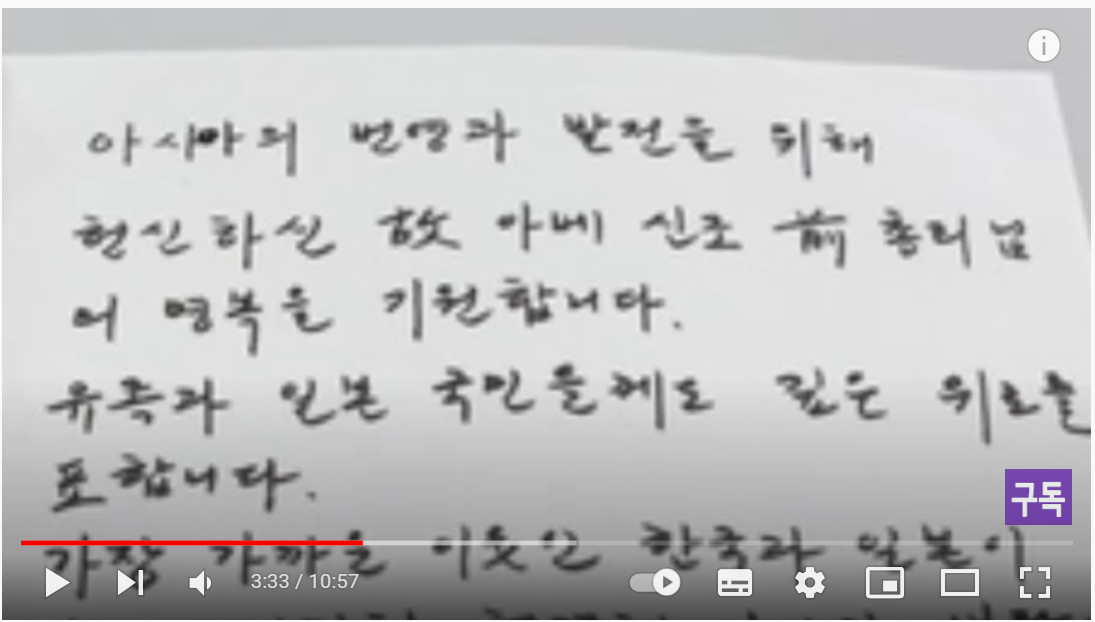 아시아의 번영과 발전을 위해
헌신하신 故 아베 신조 前 총리님
의 명복을 기원합니다.
유족과 일본 국민들께도 깊은 위로를
표합니다.
구독
가장 가까운 이웃인 한국과 일본이
3:33 / 10:57